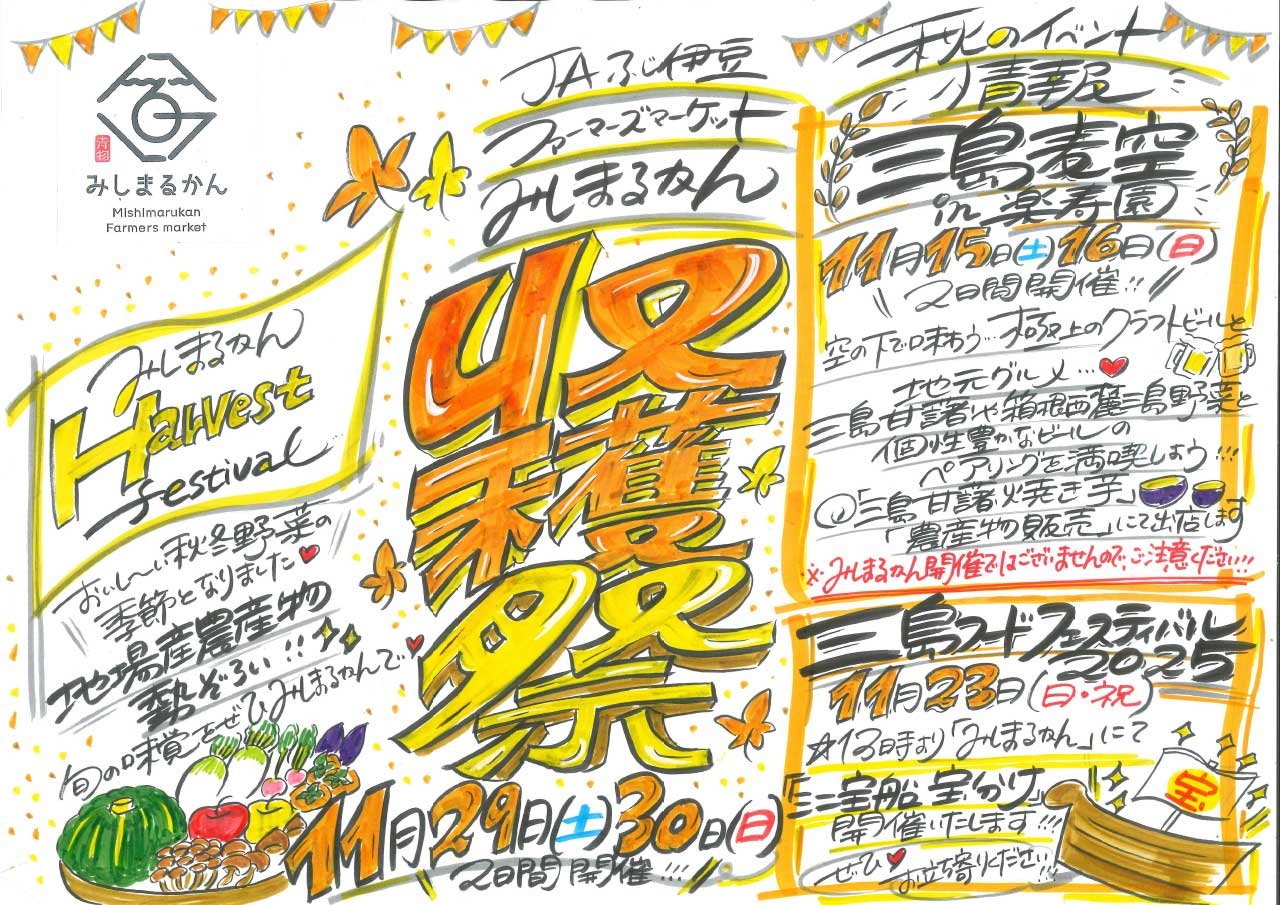 青物
みしまるかん
Mishimarukan
Farmers market
JAふじ伊豆
ファーマーズマーケット
みしまるかん
収穫祭
11月29日(土)30日(日)
2日間開催!!!
みしまるかん
Harvest
festival
おいし〜い秋冬野菜の
季節となりました
地場産農産物
勢ぞろい!!
旬の味覚をぜひみしまるかんで…
秋のイベント
情報
三島麦空
in 楽寿園
11月15日(土)16日(日)
2日間開催!!
空の下で味わう…極上のクラフトビールと
地元グルメ…
三島甘藷や箱根西麓三島野菜と
個性豊かなビールの
ペアリングを満喫しよう!!!
@「三島甘藷焼き芋」
「農産物販売」にて出店します
※みしまるかん開催ではございませんので、ご注意ください!!!
三島フードフェスティバル
2025
11月23日(日・祝)
☆13時より「みしまるかん」にて
「ミニ宝船宝分け」
開催いたします!!!
宝
ぜひ
お立ち寄りください!!!